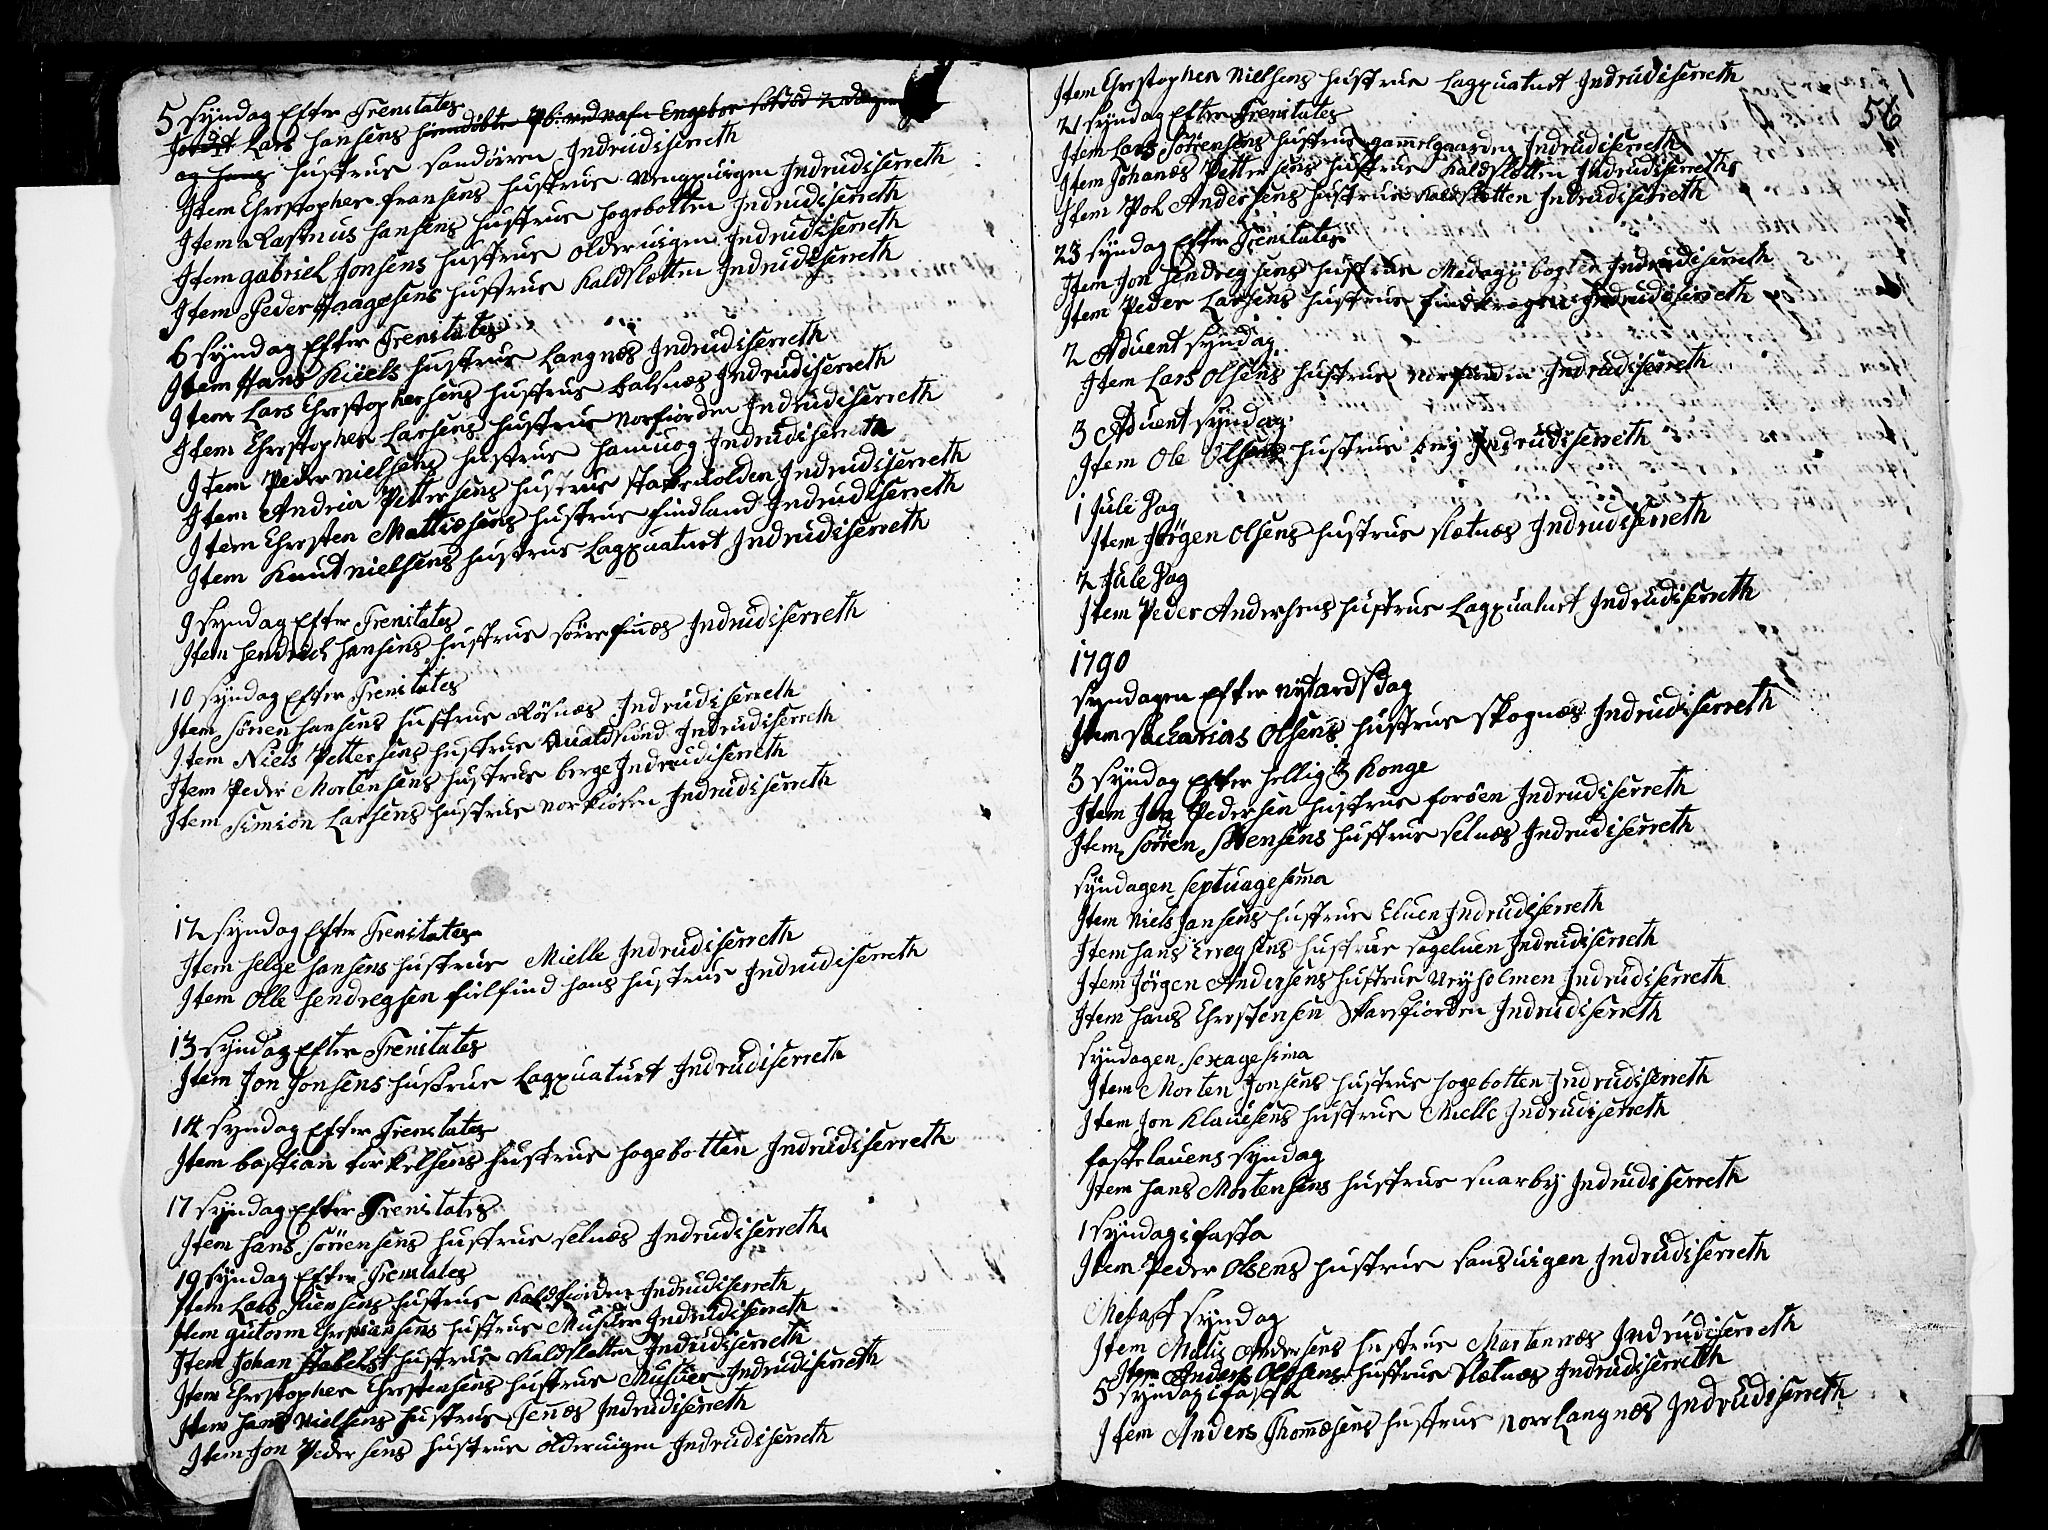 5 Syndag Efter Trenitates
Jordet Lars Hansens hiemdöbte Pb. ved nafn Engebor födt 2 dage
og hans hustrue Sandören Indrüdiserreth
Item Christopher fransens hustrue Vengpuigen Indrüdiserreth
Item Rasmus Hansens hustrue hogebotten Indrüdiserreth
Item gabriel Jonsens hustrue olderuigen Indrüdiserreth
Item Peder Haagesens hustrue Kaldsletten Indrüdiserreth
6 Syndag Efter Trenitates
Item Hans Kiiels hustrue Langnæs Indrüdiserreth
Item Lars Christophersens hustrue balsnæs Indrüdiserreth
Item Christopher Larsens hustrue Norfiorden Indrüdiserreth
Item Peder Nielsens hustrue hamuog Indrüdiserreth
Item Andrea Pettersens hustrue Stakeuolden Indrüdiserreth
Item Christen Mattisens hustrue findland Indrüdiserreth
Item Knut Nielsens hustrue Lagpuaturt Indrüdiserreth
9 Syndag Efter Trenitates
Item Hendrich Hansens hustrue Sörrefinæs Indrüdiserreth
10 Syndag Efter Trenitates
Item Sören Hansens hustrue Rösnæs Indrüdiserreth
Item Niels Pettersens hustrue Qualdsund Indrüdiserreth
Item Peder Mortensens hustrue berge Indrüdiserreth
Item Simion Larsens hustrue Norkiösen Indrüdiserreth
12 Syndag Efter Trenitates
Item Helge Hansens hustrue Mielle Indrüdiserreth
Item Olle Hendregsen fielfind hans hustrue Indrüdiserreth
13 Syndag Efter Trenitates
Item Jon Jonsens hustrue Lagpuaturt Indrüdiserreth
14 Syndag Efter Trenitates
Item bastian torkelsens hustrue hogebotten Indrüdiserreth
17 Syndag Efter Trenitates
Item Hans Sörrensens hustrue Selnæs Indrüdiserreth
19 Syndag Efter Trenitates
Item Lars Suensens hustrue Kaldfiorden Indrüdiserreth
Item gutorm Christiansens hustrue Musuer Indrüdiserreth
Item Johan Habelst hustrue Kaldsletten Indrüdiserreth
Item Christopher Christensens hustrue Musuer Indrüdiserreth
Item Hans Nielsens hustrue Tennæs Indrüdiserreth
Item Jon Pedersens hustrue olderuigen Indrüdiserreth
56
Item Christopher Nielsens hustrue Lagpuaturt Indrüdiserreth
21 Syndag Efter Trenitates
Item Lars Sörensens hustrue gammelgaarden Indrüdiserreth
Item Johanes Pettersens hustrue Kaldsletten Indrüdiserreth
Item Pol Andersens hustrue Kaldsletten Indrüdiserreth
23 Syndag Efter Trenitates
Item Jon Hendregsens hustrue Medagsbogten Indrüdiserreth
Item Peder Larsens hustrue findkrogen Indrüdiserreth
2 Aduent Syndag
Item Lars Olsens hustrue Norfiorden Indrüdiserreth
3 Aduent Syndag
Item Ole Olsens hustrue Indrüdiserreth
1 Jule Dag
Item Jörgen Olsens hustrue Sletnæs Indrüdiserreth
2 Jule Dag
Item Peder Andersens hustrue Lagpuaturt Indrüdiserreth
1790
Syndagen Efter Nytards Dag
Item Sacharias Olsens hustrue Skognæs Indrüdiserreth
3 Syndag Efter Hellig 3 Konge
Item Jon Pedersen hustrue foröen Indrüdiserreth
Item Sörren Stensens hustrue Selnæs Indrüdiserreth
Syndagen Septuagesima
Item Niels Jansens hustrue Eluen Indrüdiserreth
Item Hans Erregsens hustrue Sageluen Indrüdiserreth
Item Jörgen Andersens hustrue Reyholmen Indrüdiserreth
Item Hans Christensen Skarsfiorden Indrüdiserreth
Syndagen Sexagesima
Item Morten Jonsens hustrue hogebotten Indrüdiserreth
Item Jon Klauesens hustrue Mielle Indrüdiserreth
fastelauens Syndag
Item Hans Mortensens hustrue Snarby Indrüdiserreth
1 Syndag i fasta
Item Peder Olsens hustrue Sansuigen Indrüdiserreth
Mefast Syndag
Item Matis Andersens hustrue Martennæs Indrüdiserreth
Item Anders Olsens hustrue Sletnæs Indrüdiserreth
5 Syndag i fasta
Item Anders Thomæsens hustrue Norlangnæs Indrüdiserreth